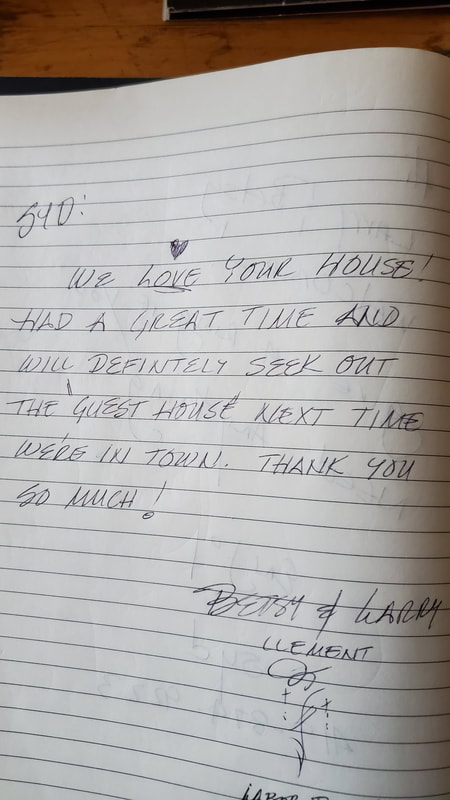 SYD:
WE LOVE YOUR HOUSE!
HAD A GREAT TIME AND
WILL DEFINTELY SEEK OUT
THE "GUEST HOUSE" NEXT TIME
WE'RE IN TOWN. THANK YOU
SO MUCH!
BETSY & LARRY
CLEMENT
LABOR